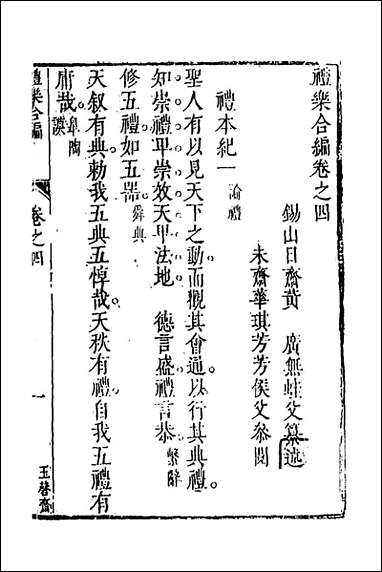 禮樂合編卷之四
錫山日齋黃　廣無蛙父纂述
未齋華琪芳芳侯父叅閱
禮本紀一　論禮
聖人有以見天下之動而觀其會通以行其典禮
知崇禮卑崇效天卑法地　德言盛禮言恭　繫辭
修五禮如五器　舜典
天叙有典勅我五典五惇哉天秩有禮自我五禮有
庸哉　臯陶謨
禮樂合編　卷之四　一　玉磬齋